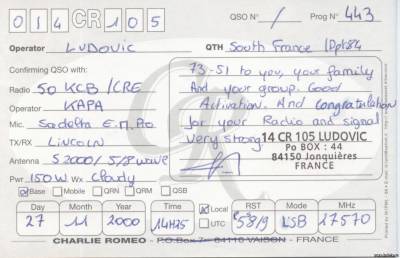 014 CR 105 QSO N° / Prog N° 443
Operator LUDOVIC QTH South France / Dpt 84
Confirming QSO with: 73-51 to you, your family
Radio 50 KCB/CRE And your group. Good
Operator KAPA Activation. And congratulation
Mic. Sadelta E.M.Pro for your Radio and signal
very strong. 14 CR 105 LUDOVIC
TX/RX LINCOLN PO BOX : 44
Antenna S2000 / 5/8 wave 84150 Jonquières
FRANCE
Pwr 150W Wx Cloudy
Base Mobile QRN QRM QSB
Day Month Year Time Local UTC RST Mode MHz
27 11 2000 14H25 58/9 LSB 27570
CHARLIE ROMEO - P.O.Box 7 - 84110 VAISON - FRANCE